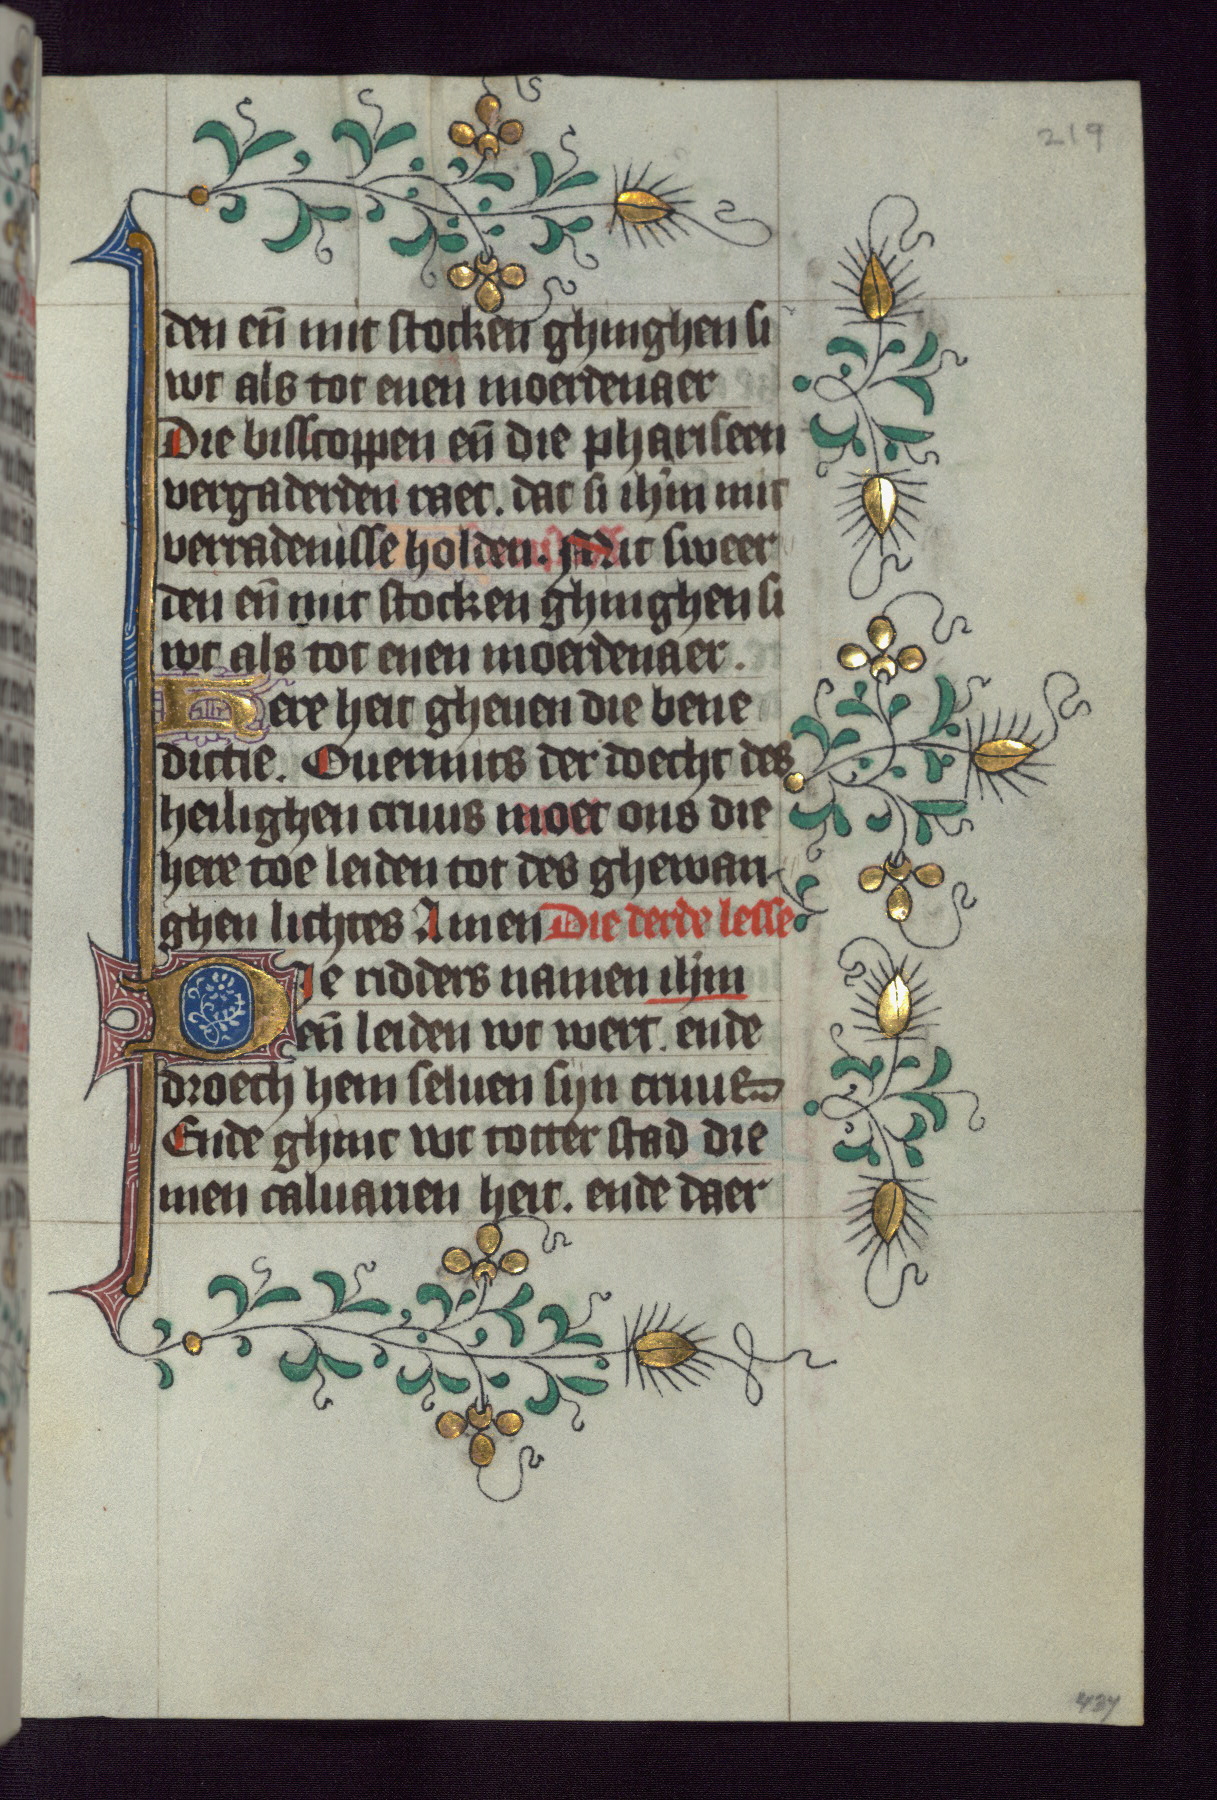 219
den en̄ mit stocken ghinghen si
wt als tot enen moerdenaer
Die bisscoppen en̄ die phariseen
vergaderden raet. dat si ihm̄ mit
verradenisse holden. Mit sweer
den en̄ mit stocken ghinghen si
wt als tot enen moerdenaer.
Here heit gheuen die bene
dictie. Ouermits der doecht des
heilighen cruus moet ons die
here toe leiden tot des ghewan
ghen lichtes Amen Die derde lesse
Die ridders namen ihm̄
en̄ leiden wt wert. ende
droech hem seluen sijn cruue
Ende ghint wt totter stad die
men caluarien heit. ende daer
437